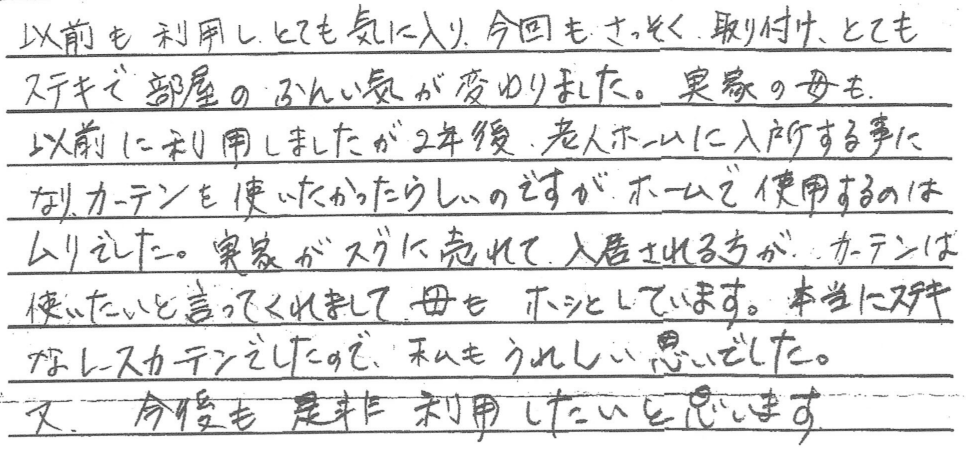 以前も利用し、とても気に入り、今回もさっそく取り付け、とても
ステキで部屋のふんい気が変わりました。実家の母も、
以前に利用しましたが2年後、老人ホームに入所する事に
なり、カーテンを使いたかったらしいのですが、ホームで使用するのは
ムリでした。実家がスグに売れて、入居される方が、カーテンは
使いたいと言ってくれまして、母もホッとしています。本当にステキ
なレースカーテンでしたので、私もうれしい思いでした。
又、今後も是非利用したいと思います